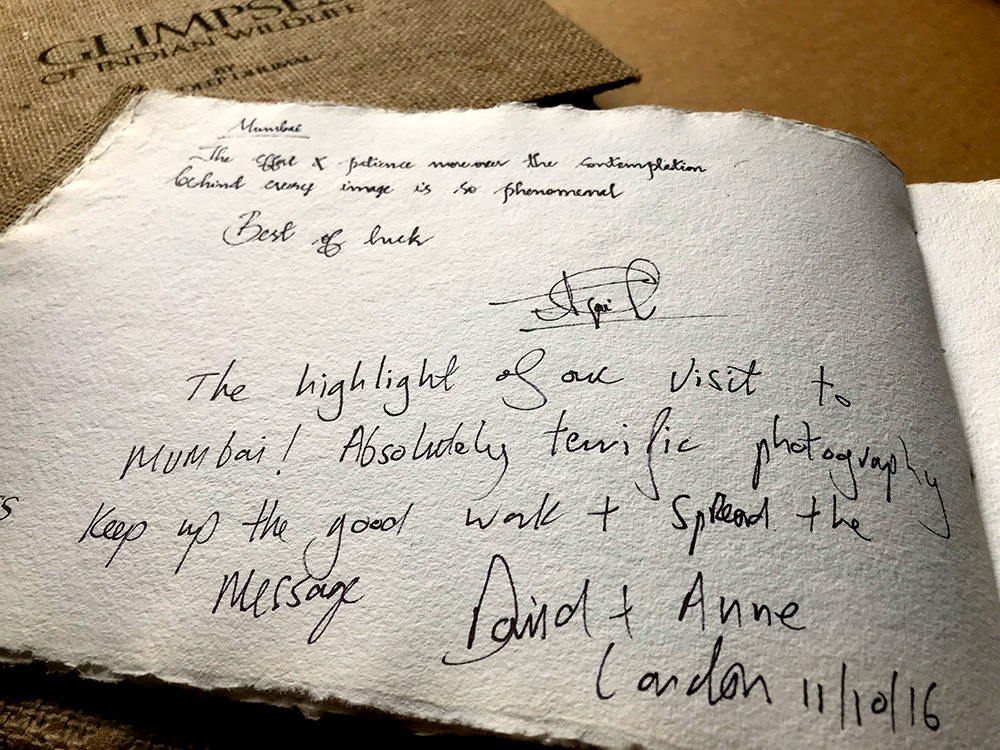 GLIMPSES
OF INDIAN WILDLIFE
BY
DHUMAL
Mumbai
The effort & patience moreover the contemplation
behind every image is so phenomenal
Best of luck
The highlight of our visit to
Mumbai! Absolutely terrific photography
Keep up the good work + spread the
message
David + Anne
London 11/10/16